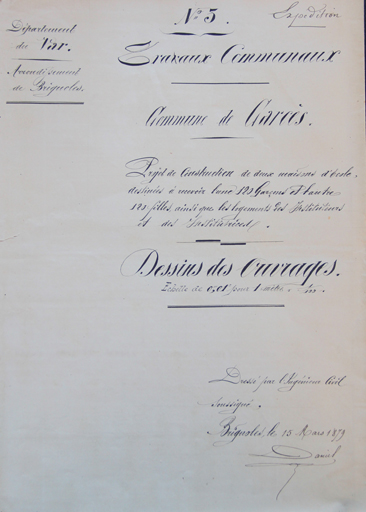 Département
du Var.
Arrondissement
de Brignoles.
N° 5.
Expédition
Travaux Communaux
Commune de Carcès.
Projet de Construction de deux maisons d'École
destinées à recevoir l'une 125 Garçons et l'autre
125 filles, ainsi que les logements des Instituteurs
et des Institutrices.
Dessins des Ouvrages.
Echelle de 0,01 pour 1 mètre.
Dressé par l'Ingénieur Civil
soussigné.
Brignoles, le 15 Mars 1879
Daniel